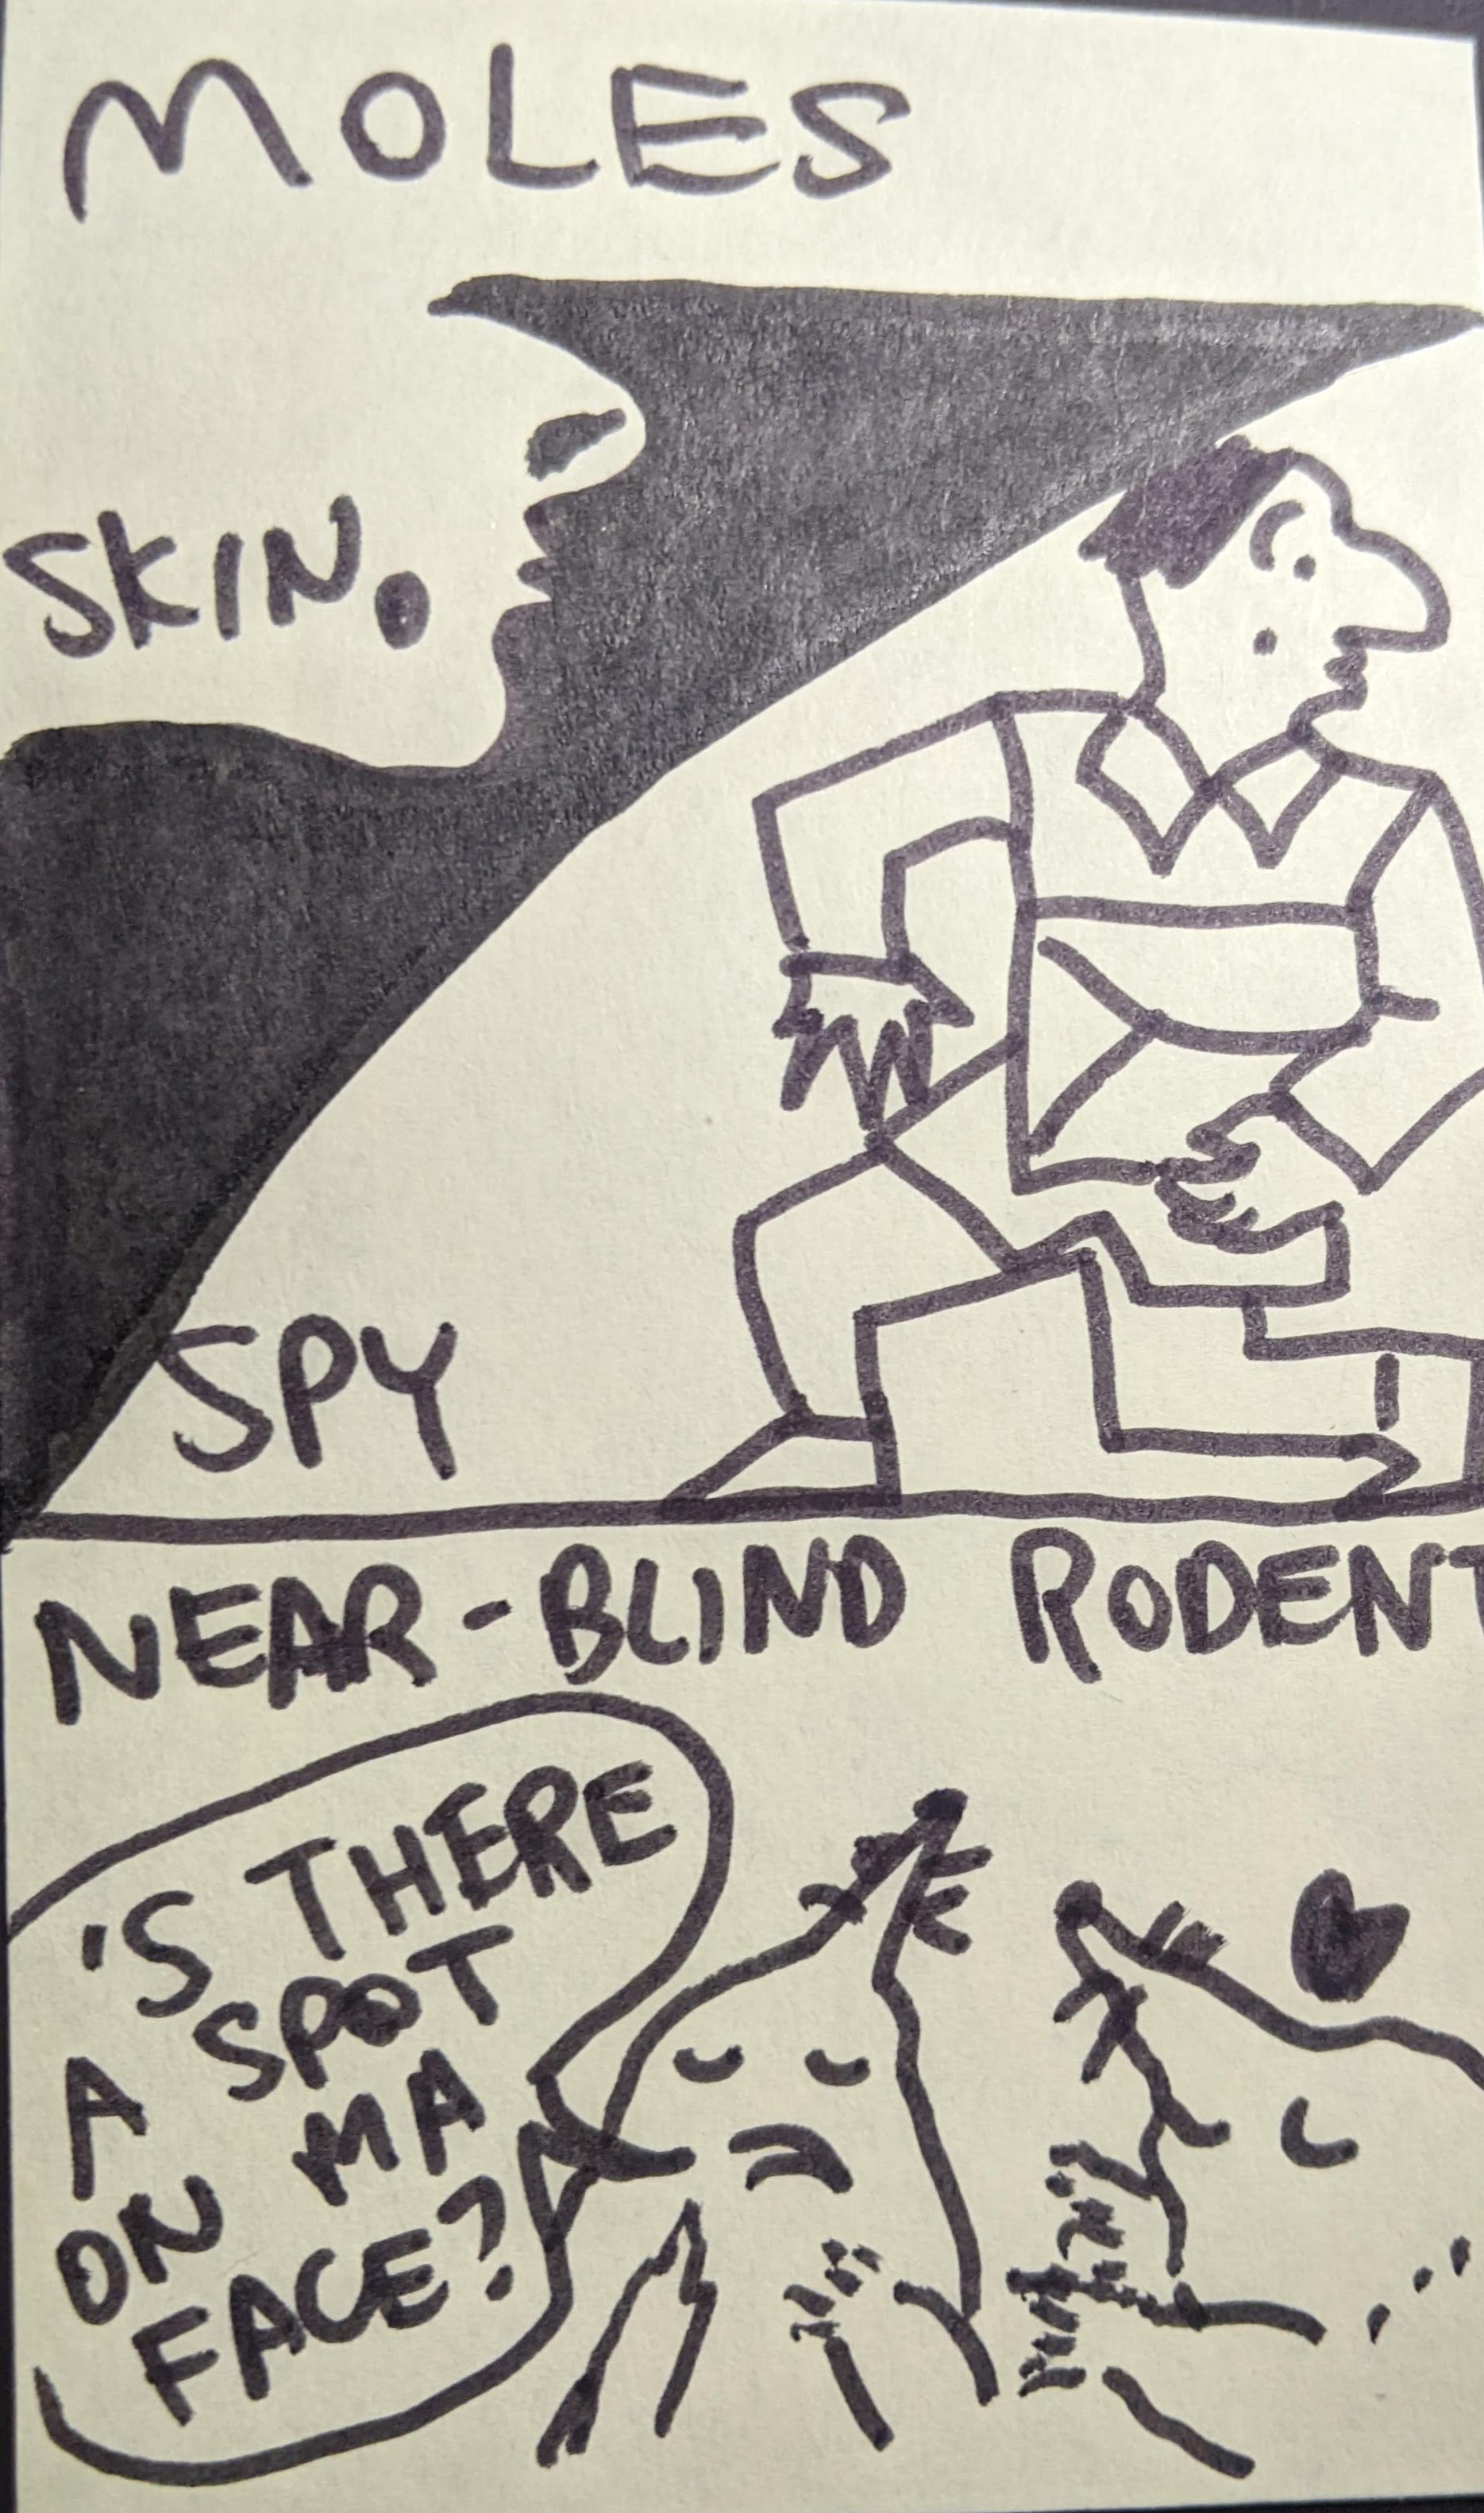 MOLES
SKIN.
SPY
NEAR-BLIND RODENT
'S THERE
A SPOT
ON MA
FACE?